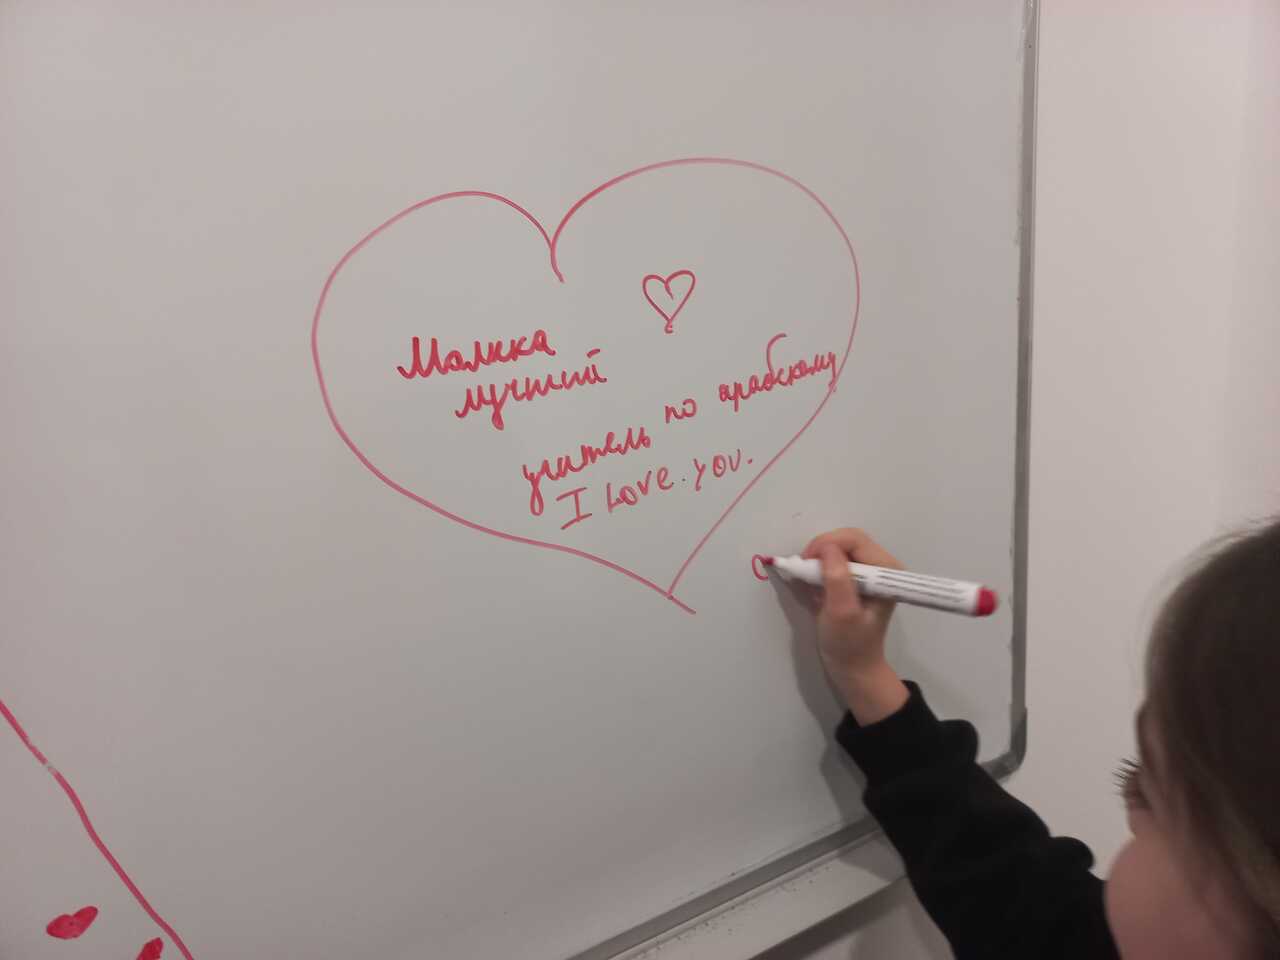 Малика
лучший
учитель по арабскому
I Love. you.